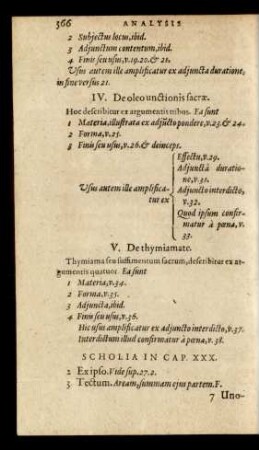 366 ANALYSIS
2 Subjectus locus, ibid.
3 Adjunctum contentum, ibid.
4 Finis seu usus, v.19.20.& 21.
Usus autem ille amplificatur ex adjuncta duratione,
in fine versus 21.
IV. De oleo unctionis sacræ.
Hoc describitur ex argumentis tribus. Ea sunt
1 Materia, illustrata ex adjūcto pondere, v.23.& 24.
2 Forma, v.25.
3 Finis seu usus, v.26.& deinceps.
Usus autem ille amplifica-
tur ex
Effectu, v.29.
Adjunctâ duratio-
ne, v.31.
Adjuncto interdicto,
v.32.
Quod ipsum confir-
matur à pœna, v.
33.
V. De thymiamate.
Thymiama seu suffimentum sacrum, describitur ex ar-
gumentis quatuor. Ea sunt
1 Materia, v.34.
2 Forma, v.35.
3 Adjuncta, ibid.
4 Finis seu usus, v.36.
Hic usus amplificatur ex adjuncto interdicto, v.37.
Interdictum illud confirmatur à pœna, v.38.
SCHOLIA IN CAP. XXX.
2 Ex ipso. Vide sup. 27.2.
3 Tectum. Aream, summam ejus partem. F.
7 Uno-